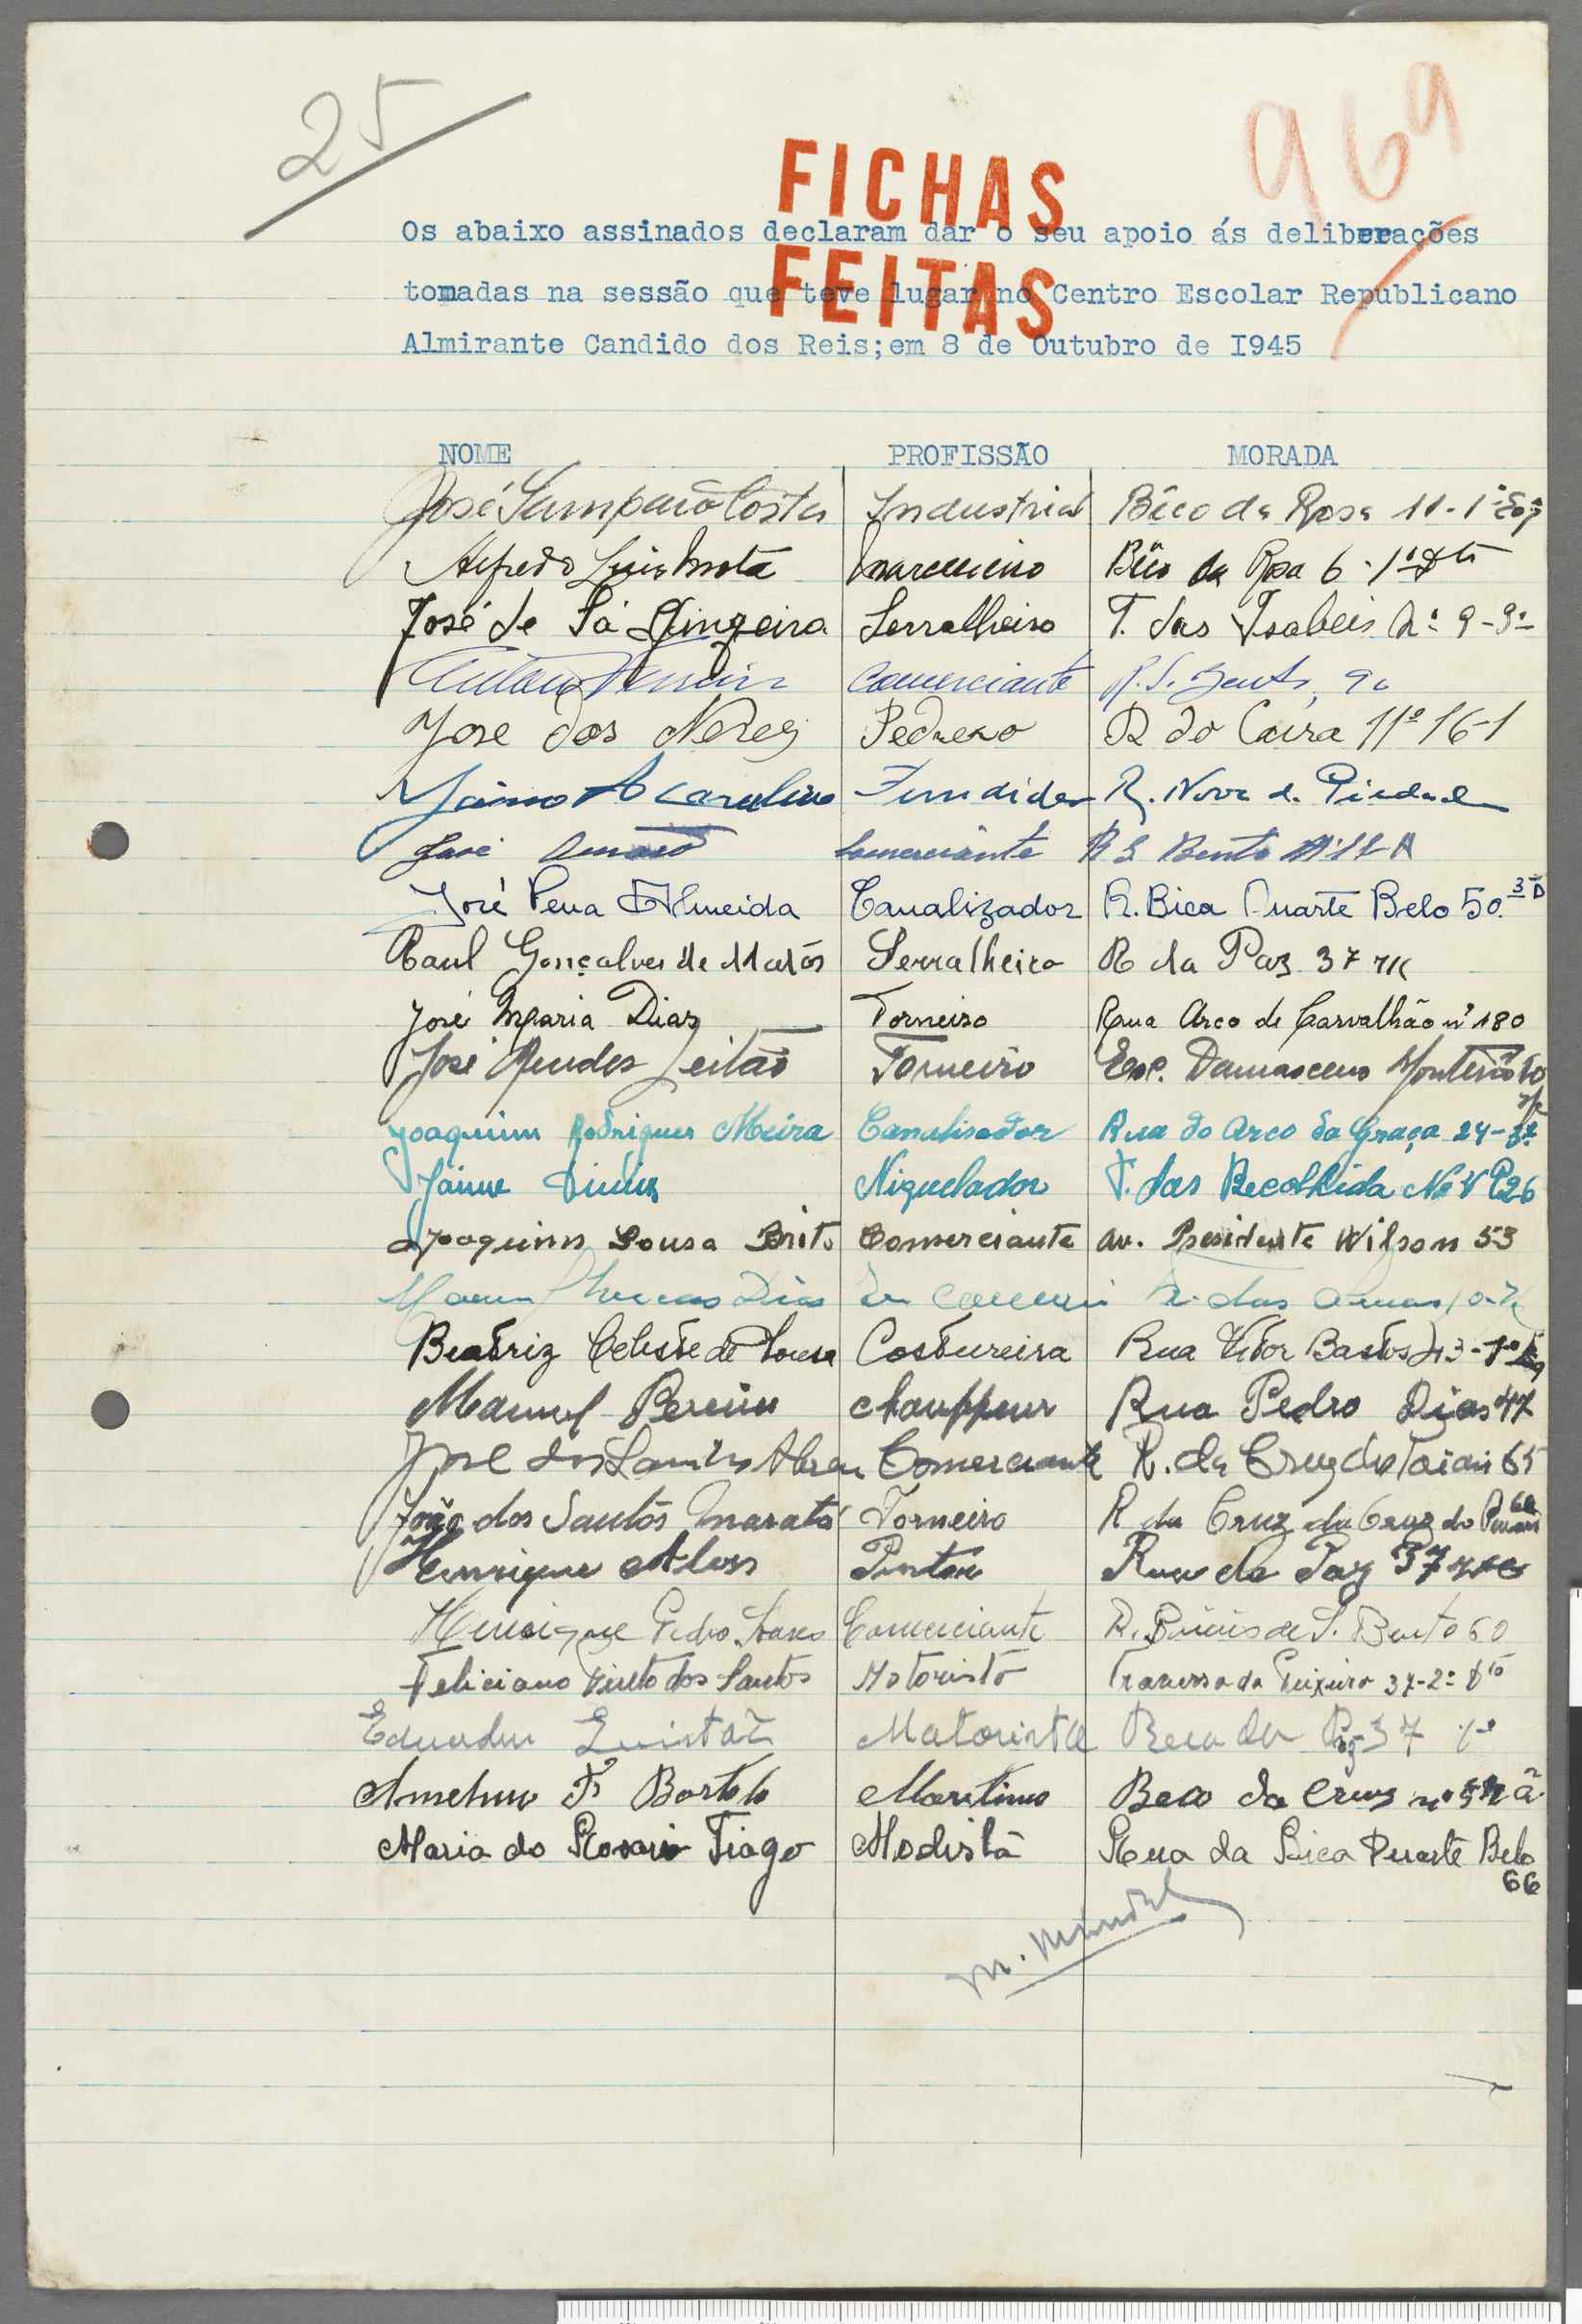 25
969
FICHAS
FEITAS
Os abaixo assinados declaram dar o seu apoio ás deliberações
tomadas na sessão que teve lugar no Centro Escolar Republicano
Almirante Candido dos Reis;em 8 de Outubro de I945
NOME PROFISSÃO MORADA
José Sampaio Costa Industrial Bêco da Rosa 11-1º Esq
Alfredo Luis Mota Marceneiro Bêco da Rosa 6-1º Dto
José de Sá Ginzeira Serralheiro T. das Isabeis Nº 9-3º
Comerciante R. S. Bento, 90
Jose das Neves Pedrero R do 16-1
Jaime A Carulino Fundidor R. Nova da Piedade
José Comerciante R S. Bento
José Pena d'Almeida Canalizador R. Bica Duarte Belo 50.3ºD
Raul Gonçalves de Matos Serralheiro R da Paz 37 r/c
José Maria Dias Torneiro Rua Arco de Carvalhão nº 180
José Mendes Leitão Torneiro Esc. Damasceno Monteiro
Joaquim Rodrigues Meira Canalisador Rua do Arco da Graça 24-3º
Jaime Diniz Niquelador T. das Recolhida
Joaquim Sousa Brito Comerciante Av. Presidente Wilson 53
Dias R. das
Beatriz Celeste de Sousa Costureira Rua Vitor Bastos
Manuel Pereira chauffeur Rua Pedro Dias 47
José dos Santos Abreu Comerciante R. da Cruz dos Poiais 65
João dos Santos Marata Torneiro R da Cruz da Cruz do Poiais
Henrique Alves Pintor Rua da Paz 37 r/c
Henrique Pedro Comerciante R. Poiais de S. Bento 60
Feliciano Pinto dos Santos Motorista Travessa do Peixeiro 37-2º Dto
Eduardo Quintão Motorista Rua da Paz 37
Anselmo F. Bartolo Maritimo Beco da Cruz
Maria do Rosario Tiago Modista Rua da Bica Duarte Belo
66